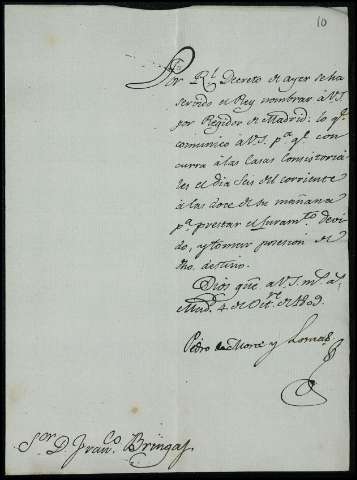 10
Por Rl. Decreto de ayer se ha
servido el Rey nombrar à V.S.
por Regidor de Madrid: lo qe.
comunico à V.S. pa. qe. con
curra à las Casas Consistoria
les el dia seis del corriente
à las doce de su mañana
pa. prestar el Juramto. devi
do, y tomar posesion de
dho. destino.
Dios gue. a V.S. ms. as.
Madd. 4 de Octre. de 1809.
Pedro de Mora y Lomas
Sor. D. Franco. Bringas